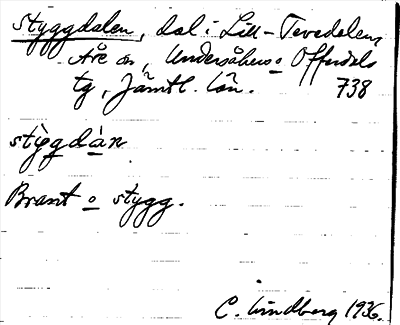 Styggdalen, dal i Lill-Tevedalen,
Åre sn, Undersåkers o Offerdals
tg, Jämtl. län. 738
stỳgdàn
Brant o stygg.
C. Lindberg 1936.